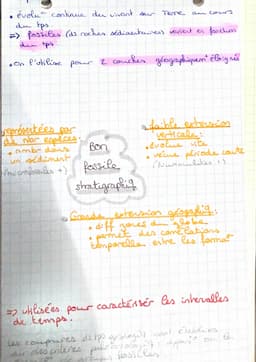 • évolu° continue du vivant sur Terre au cours
du tps
=> fossiles (ds roches sédimentaires) varient en fonction
du tps
• on l'utilise pour 2 couches géographiquem° éloignés
représentées par
de nbr espèces:
• ambr dans
un sédiment
(microfossiles +)
faible extension
verticale:
• évolue vite
• vécue période courte
(Nummulites !)
Bon
fossile
stratigraphiq
Grande extension géographiq:
• diff zones du globe
• permet des corrélations
temporelles entre les format°
=> utilisées pour caractériser les intervalles
de temps.
fossiles